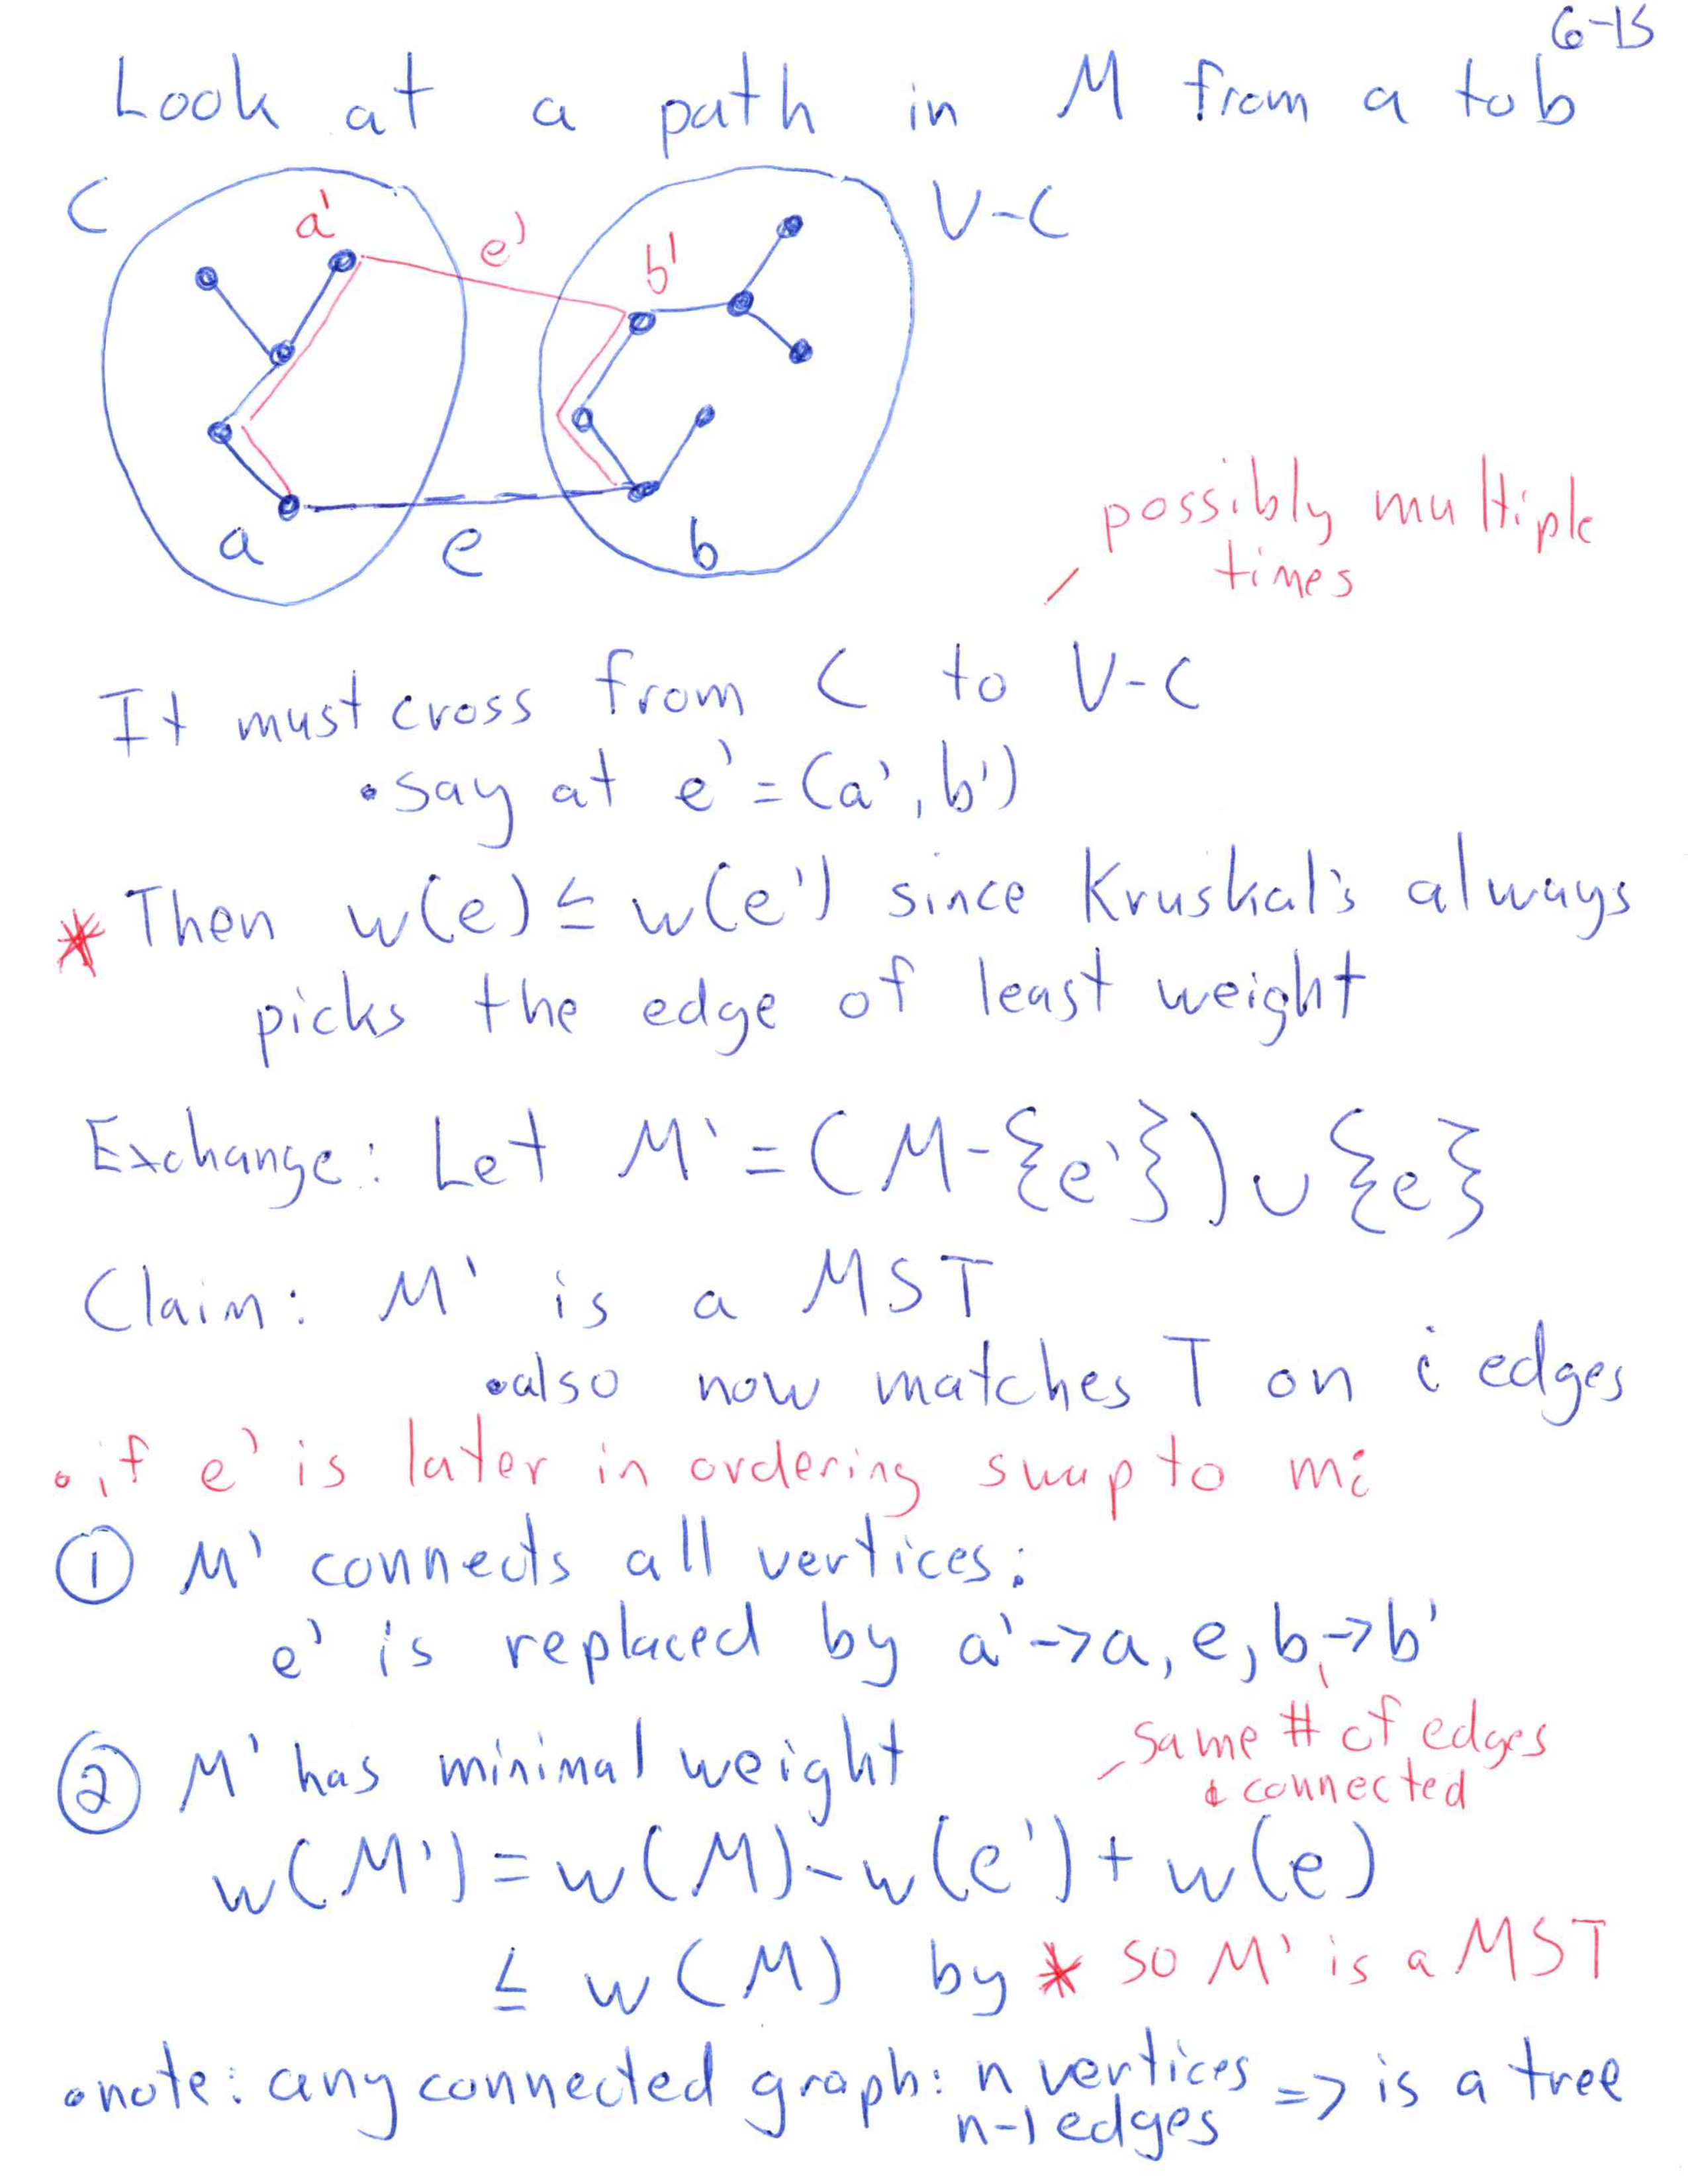 6-15
Look at a path in M from a to b
C
V-C
a'
e'
b'
a
e
b
possibly multiple
times
It must cross from C to V-C
•say at e'=(a',b')
* Then w(e) ≤ w(e') since Kruskal's always
picks the edge of least weight
Exchange: Let M' = (M-{e'})∪{e}
Claim: M' is a MST
•also now matches T on i edges
•if e' is later in ordering swap to mi
① M' connects all vertices:
e' is replaced by a'->a, e, b->b'
② M' has minimal weight
same # of edges
& connected
w(M') = w(M)-w(e')+w(e)
≤ w(M) by * so M' is a MST
•note: any connected graph: n vertices => is a tree
n-1 edges